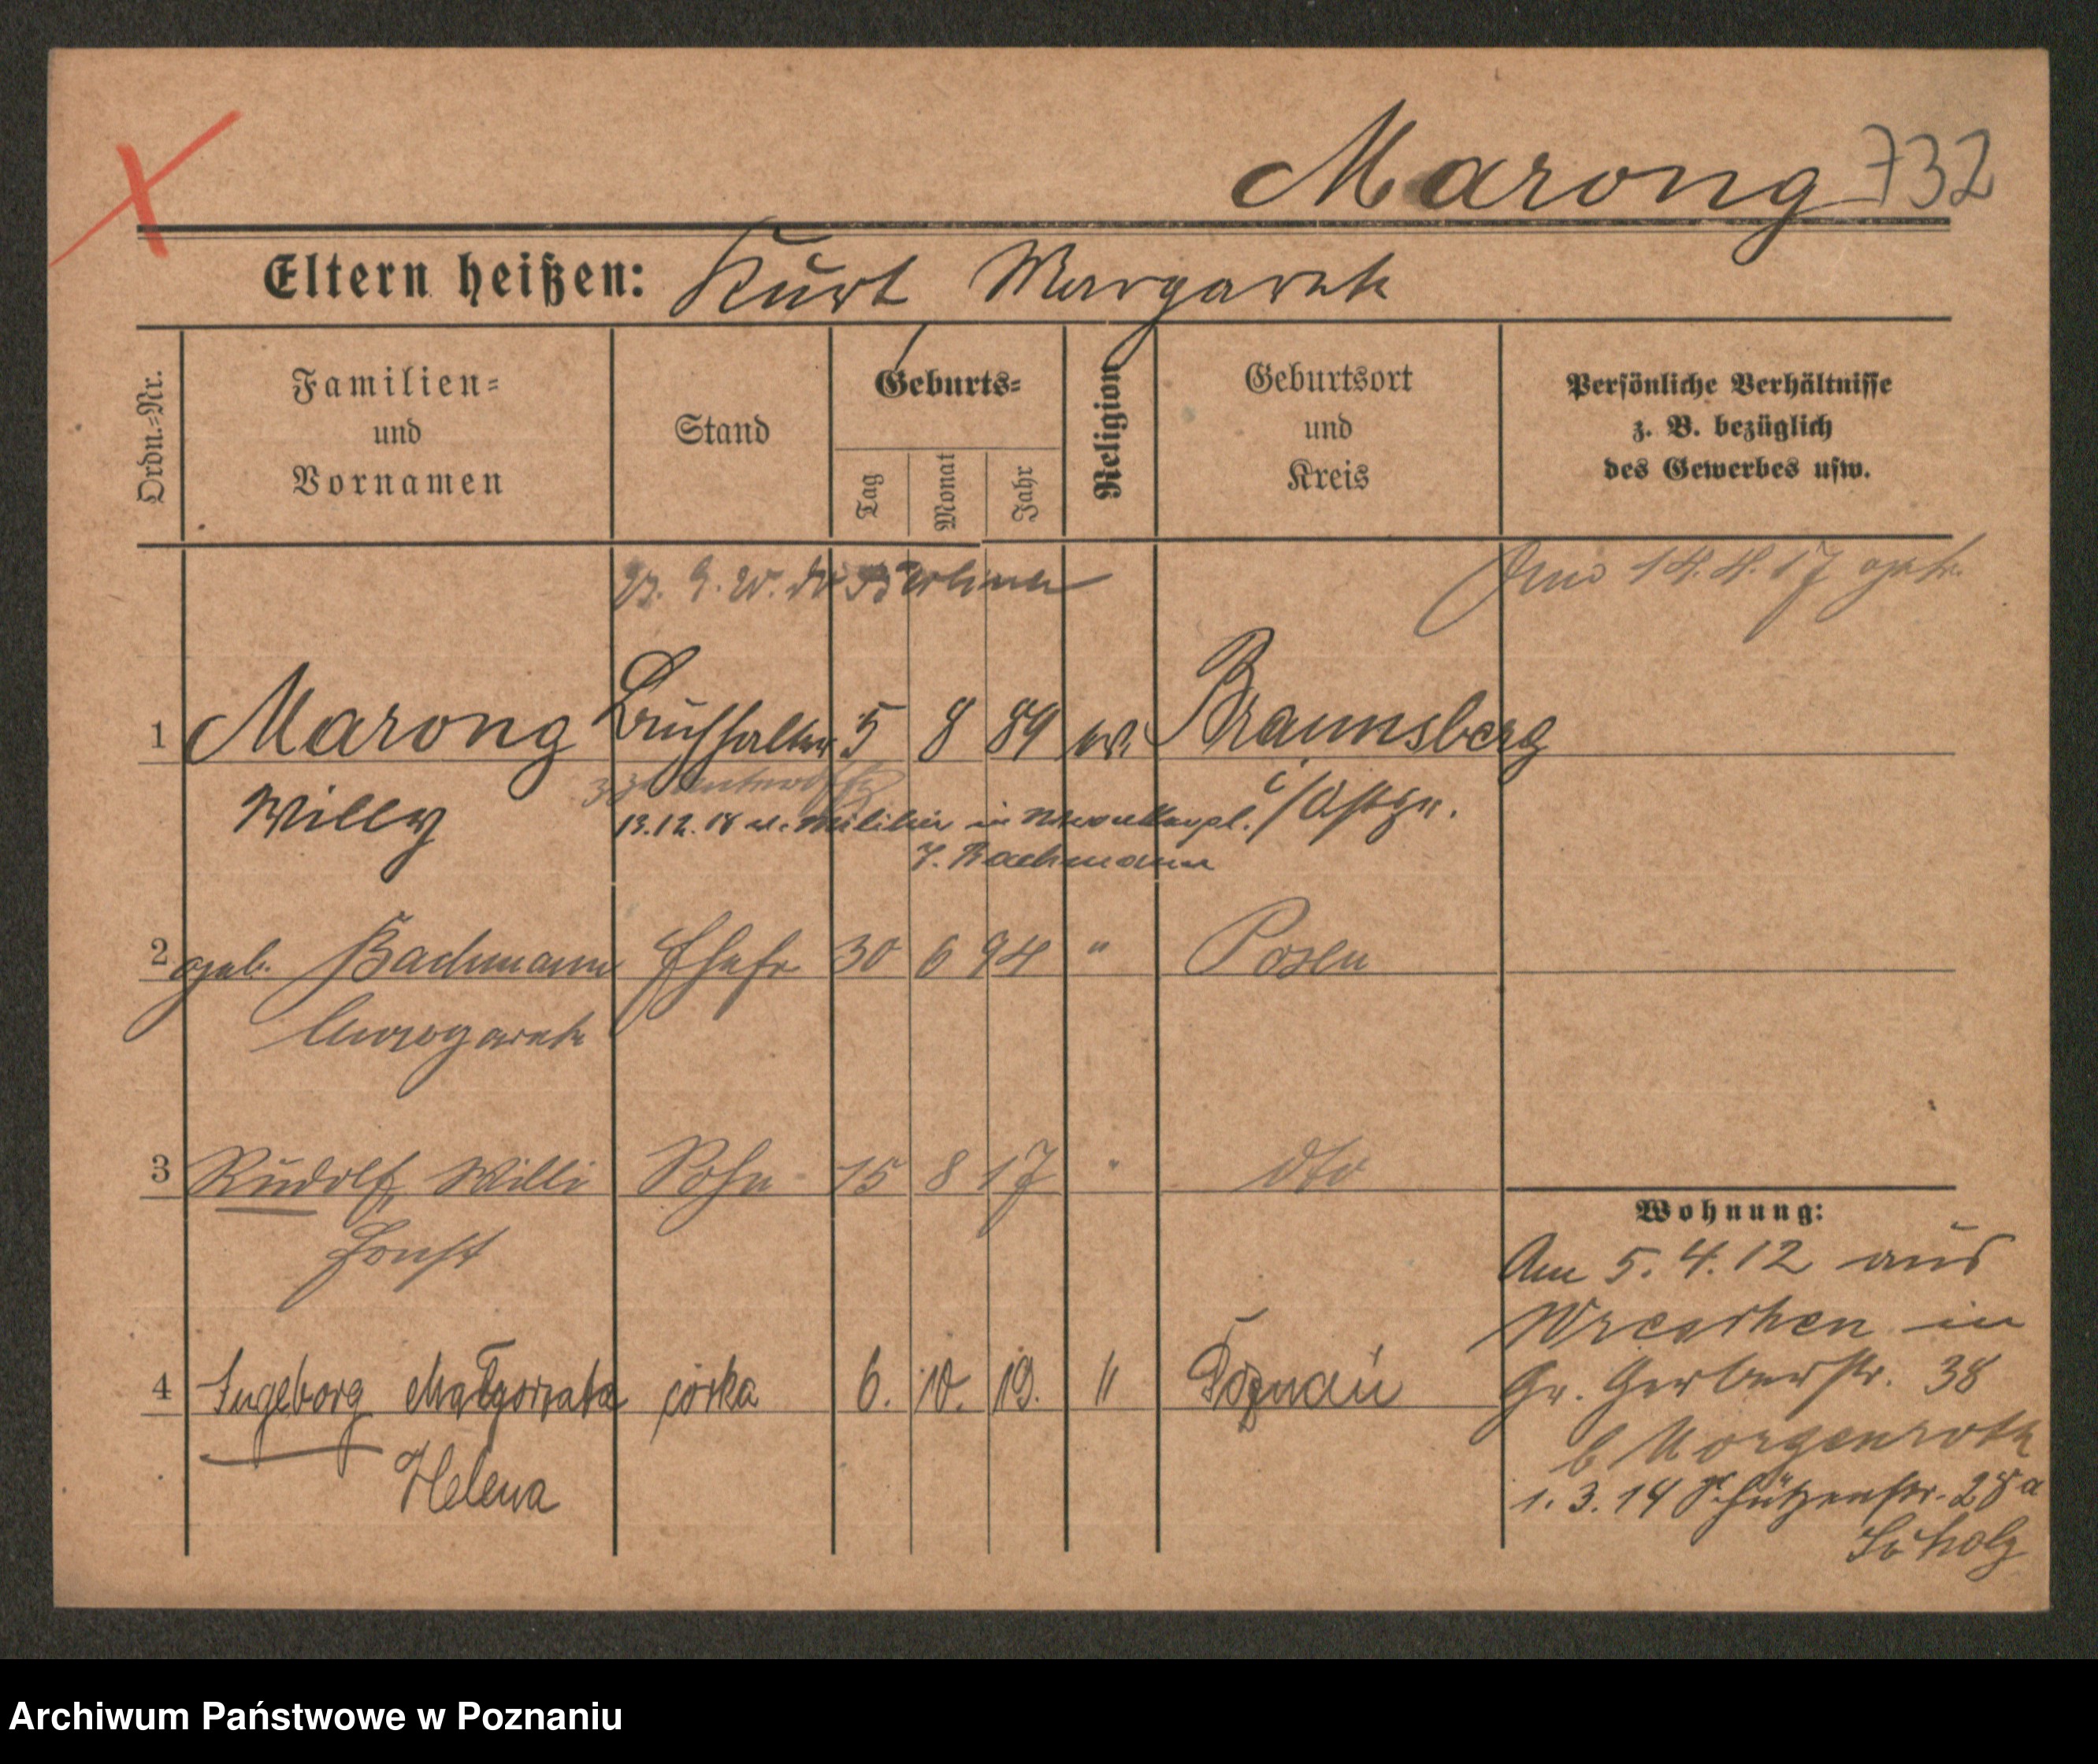 Marong 732
Eltern heißen: Kurt Margarete
Ordn.=Nr.
Familien=
und
Vornamen
Stand
Geburts=
Tag
Monat
Jahr
Religion
Geburtsort
und
Kreis
Persönliche Verhältnisse
z. B. bezüglich
des Gewerbes usw.
14. 4. 17 geh.
1 Marong Buchhalter 5 8 89 ev. Braunsberg
Willy i/Ostpr.
13.12.18 v. Militär in
Bachmann
2 geb. Bachmann Ehefr 30 6 94 " Posen
Margarete
3 Rudolf Willi Sohn 15 8 17 " dto
Ernst
4 Ingeborg Małgorzata córka 6. 10. 19. " Poznań
Helena
Wohnung:
Am 5. 4. 12 aus
Wreschen in
Gr. Gerberstr. 38
b Morgenroth
1. 3. 14 Schützenstr. 28a
Archiwum Państwowe w Poznaniu